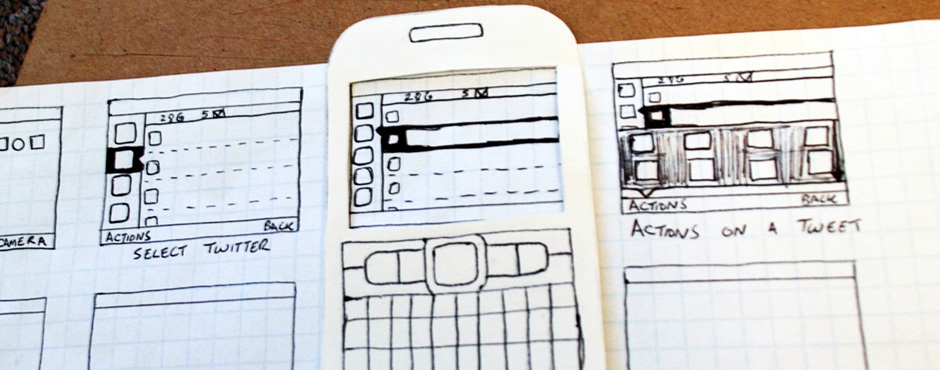 CAMERA
286 5
ACTIONS BACK
SELECT TWITTER
286 5
286 5
ACTIONS BACK
ACTIONS ON A TWEET